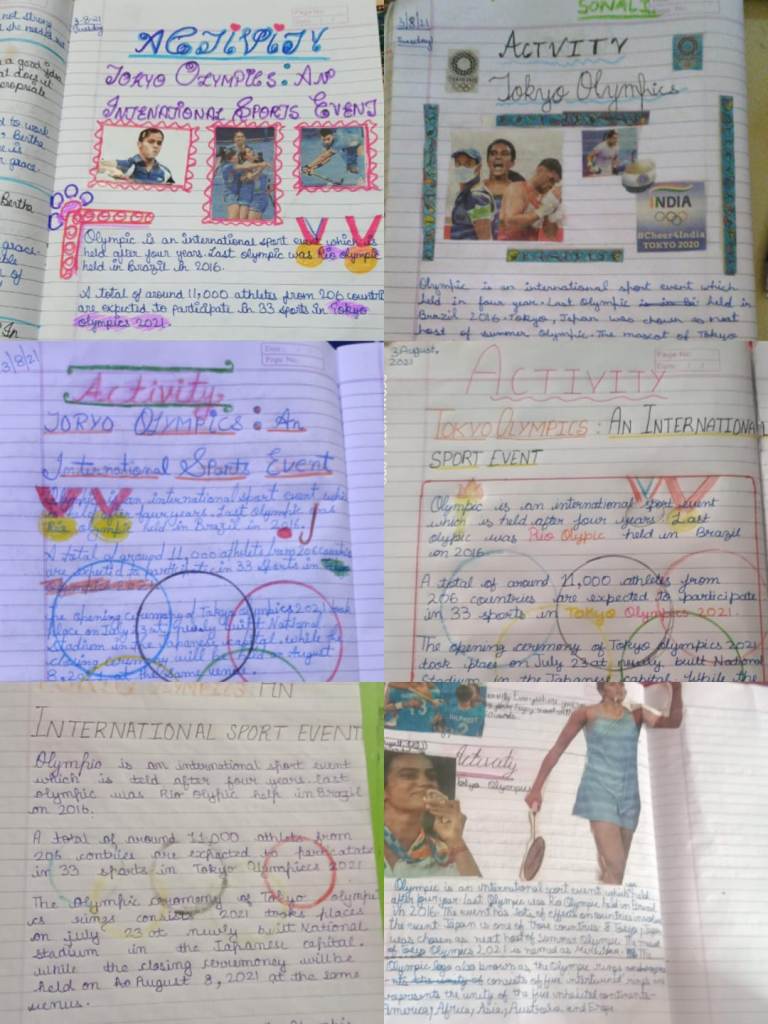 not strong
a good idea
Bertha
grace
Bertha
In
3-8-21
Tuesday
ACTIVITY
TOKYO OLYMPICS: AN
INTENATIONAL SPORTS EVENT
Olympic is an international sport event which is
held after four years. Last olympic was Rio olympic
held in Brazil in 2016.
A total of around 11,000 athletes from 206 countri
are expected to participate in 33 sports in Tokyo
olympics 2021.
SONALI
3/8/21
Tuesday
ACTVITY
Tokyo Olympics
INDIA
#Cheer4India
TOKYO 2020
Olympic is an international sport event which
held in four year. Last Olympic held in
Brazil 2016. Tokyo, Japan was chosen as next
host of summer Olympic. The mascot of Tokyo
3/8/21
Activity
TOKYO OLYMPICS: An
International Sports Event
Olympic is an international sport event whic
is held after four years. Last Olympic was
Rio olympic held in Brazil in 2016.
A total of around 11,000 athlets from 206 countries
are expected to participate in 33 sports in
The opening ceremony of Tokyo olympics 2021 took
place on July 23 at newly built National
Stadium in the Japanese capital. While the
closing ceremony will be held on August
8, 2021 at the same venue.
3 August,
2021
Page No:
ACTIVITY
TOKYO OLYMPICS: AN INTERNATIONA
SPORT EVENT
Olympic is an international sport event
which is held after four years. Last
olypic was Rio Olypic held in Brazil
on 2016
A total of around 11,000 athletes from
206 countries are expected to participate
in 33 sports in Tokyo Olympics 2021.
The opening ceremony of Tokyo olympics 2021
took place on July 23 at newly built National
Stadium in the Japanese capital. While the
INTERNATIONAL SPORT EVENT
Olympio is an international sport event
which is teld after four years. last
olympic was Rio Olyhic help in Brazil
on 2016.
A total of around 11,000 athlets from
206 contries are expected to
in 33 sports in Tokyo 2021
The Olympic ceromony of Tokyo olympe
cs rings consists 2021 tooks places
on july 23 at newly built National
stadium in the Japanese capital.
while the closing cerrumoney will be
held on Ao August 8, 2021 at the same
venus.
Activaty
Tokyo Olympics
Olympic is an international sport event which held
after four year last Olympic was Rio Olympic held in Brazil
in 2016. The event has lots of effects on countries
the event. Japan is one of those countries. & Tokyo Japan
was chosen as next host of Summer Olympic. The mascot
of Tokyo Olympics 2021 is named as
Olympic logo also known as the Olympic rings
consists of five intertwined rings
represents the unity of the five inhabited continents-
America, Africa, Asia, Australia and Erope